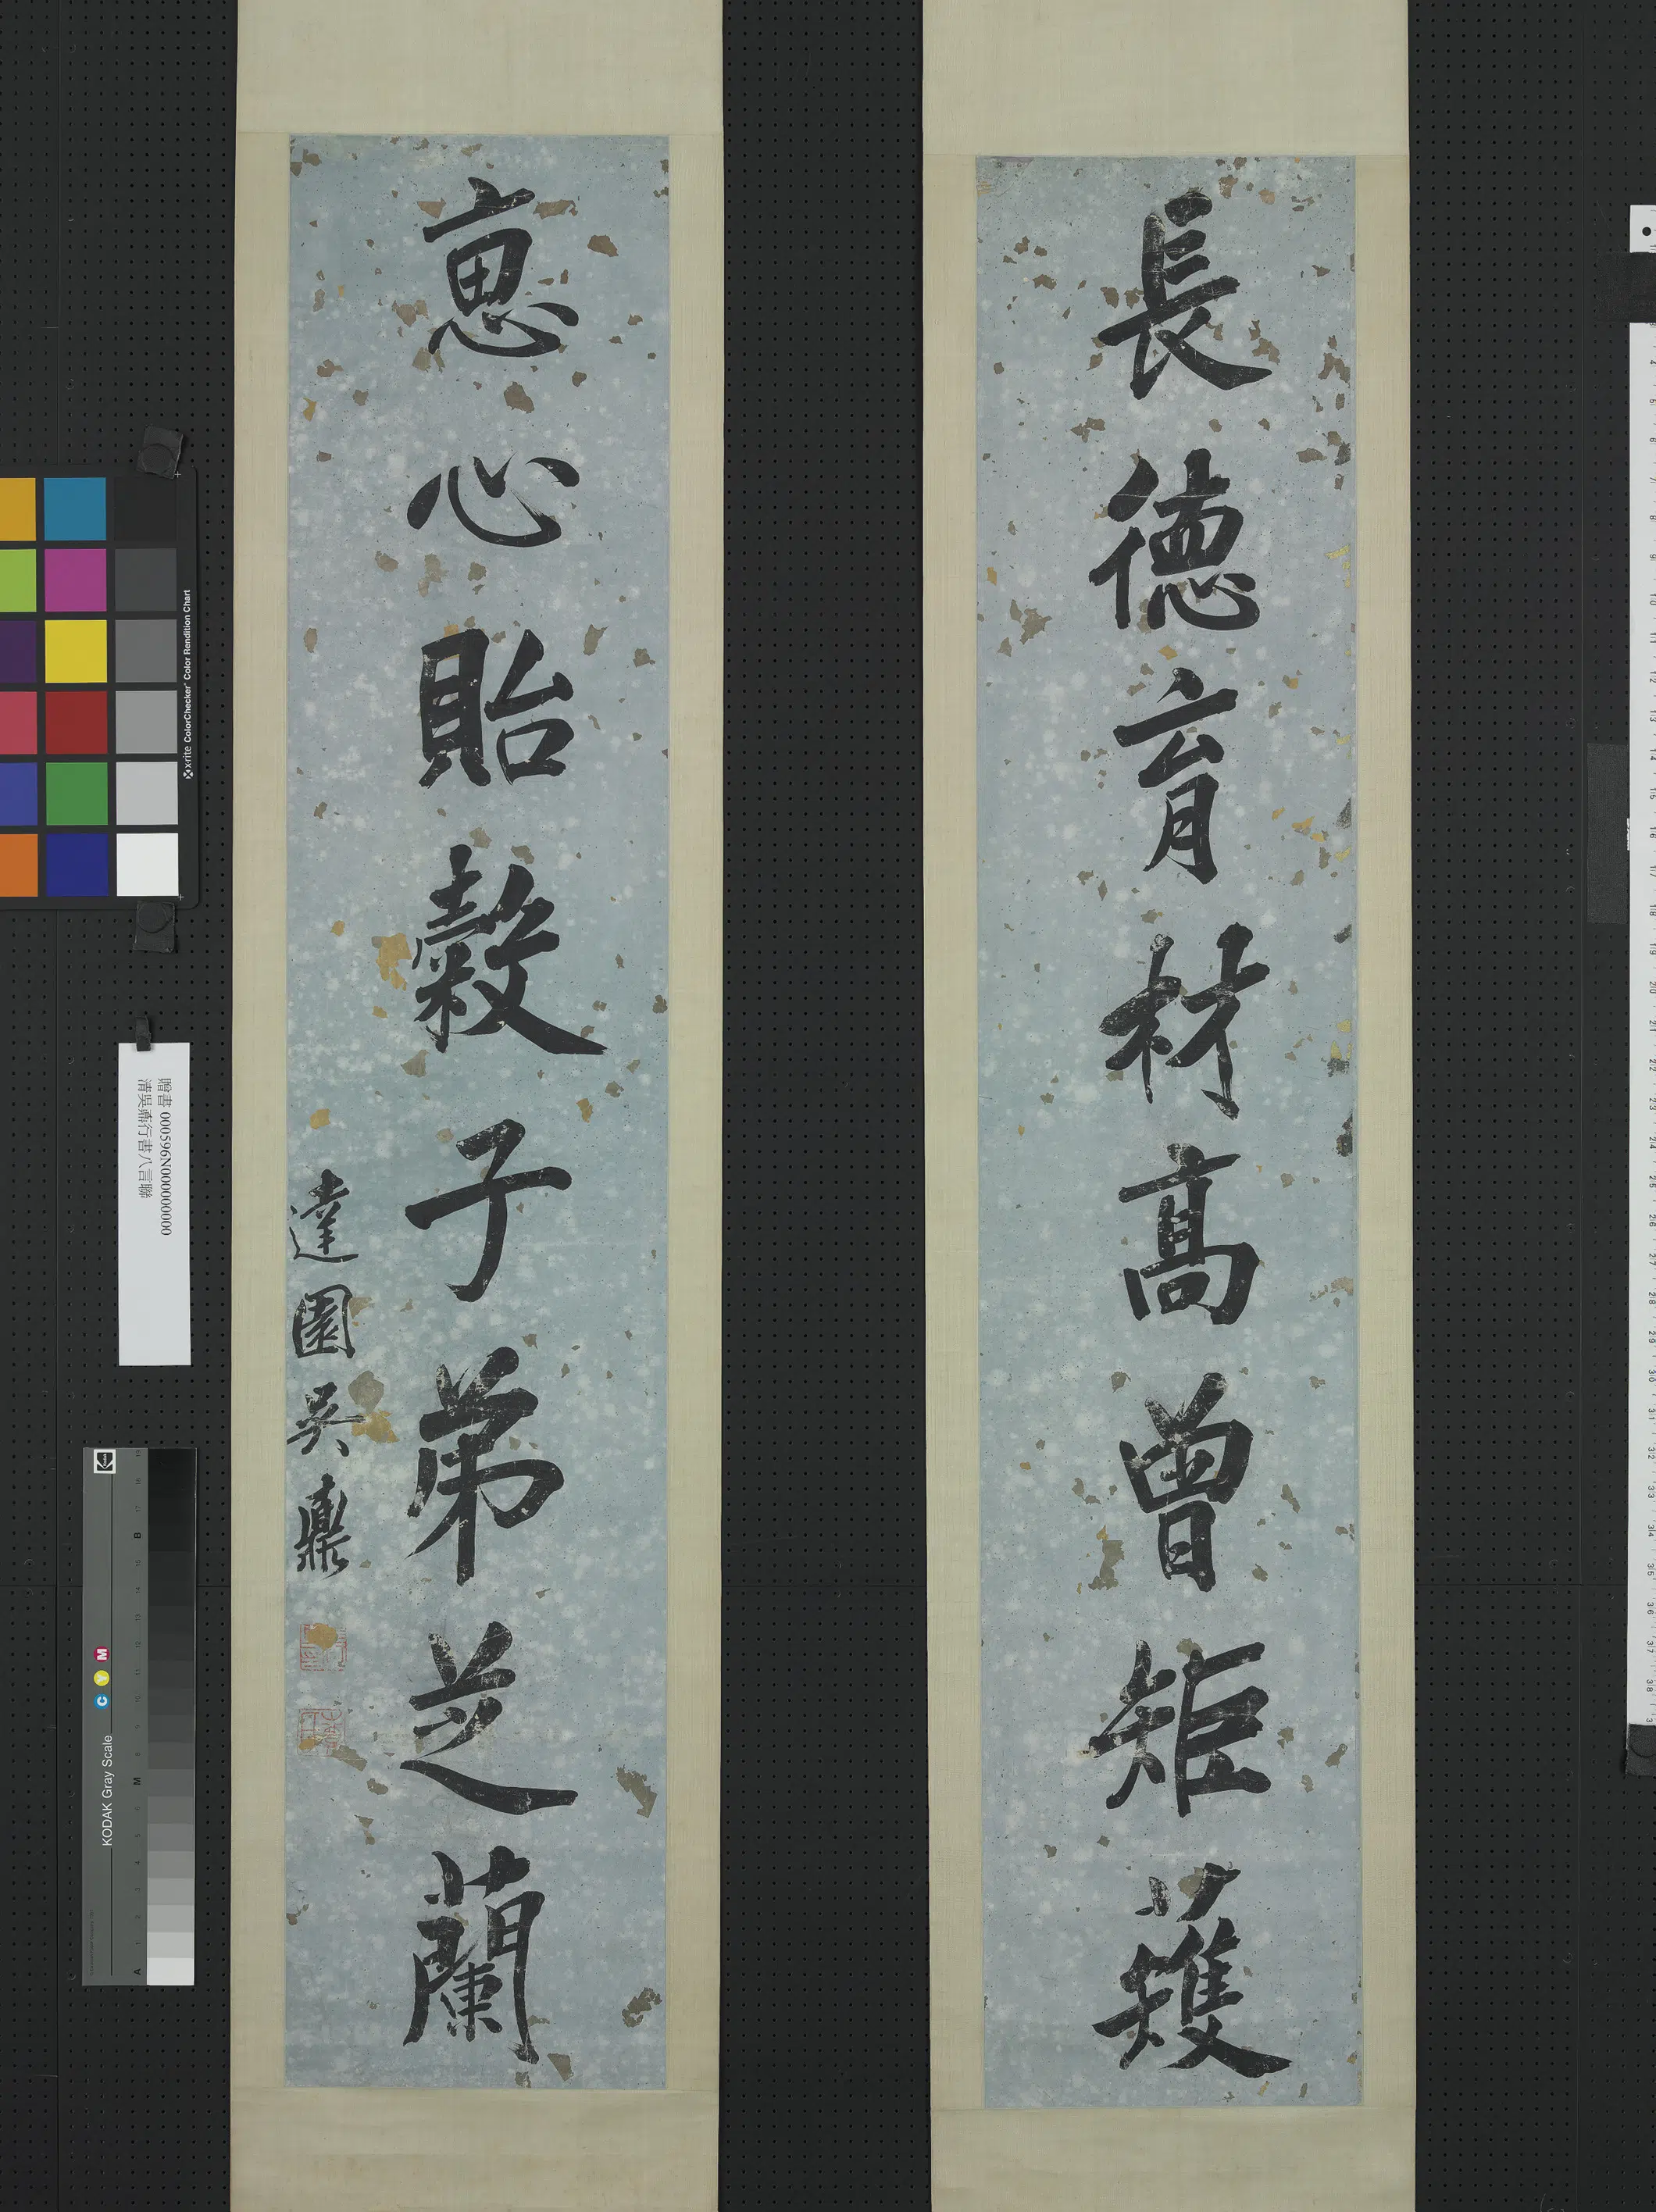 長德育材高曾矩矱
惠心貽穀子弟芝蘭
達園吳鼒
贈書 000596N000000000
清吳鼒行書八言聯
x-rite ColorChecker Color Rendition Chart
KODAK Gray Scale
C Y M
A M B